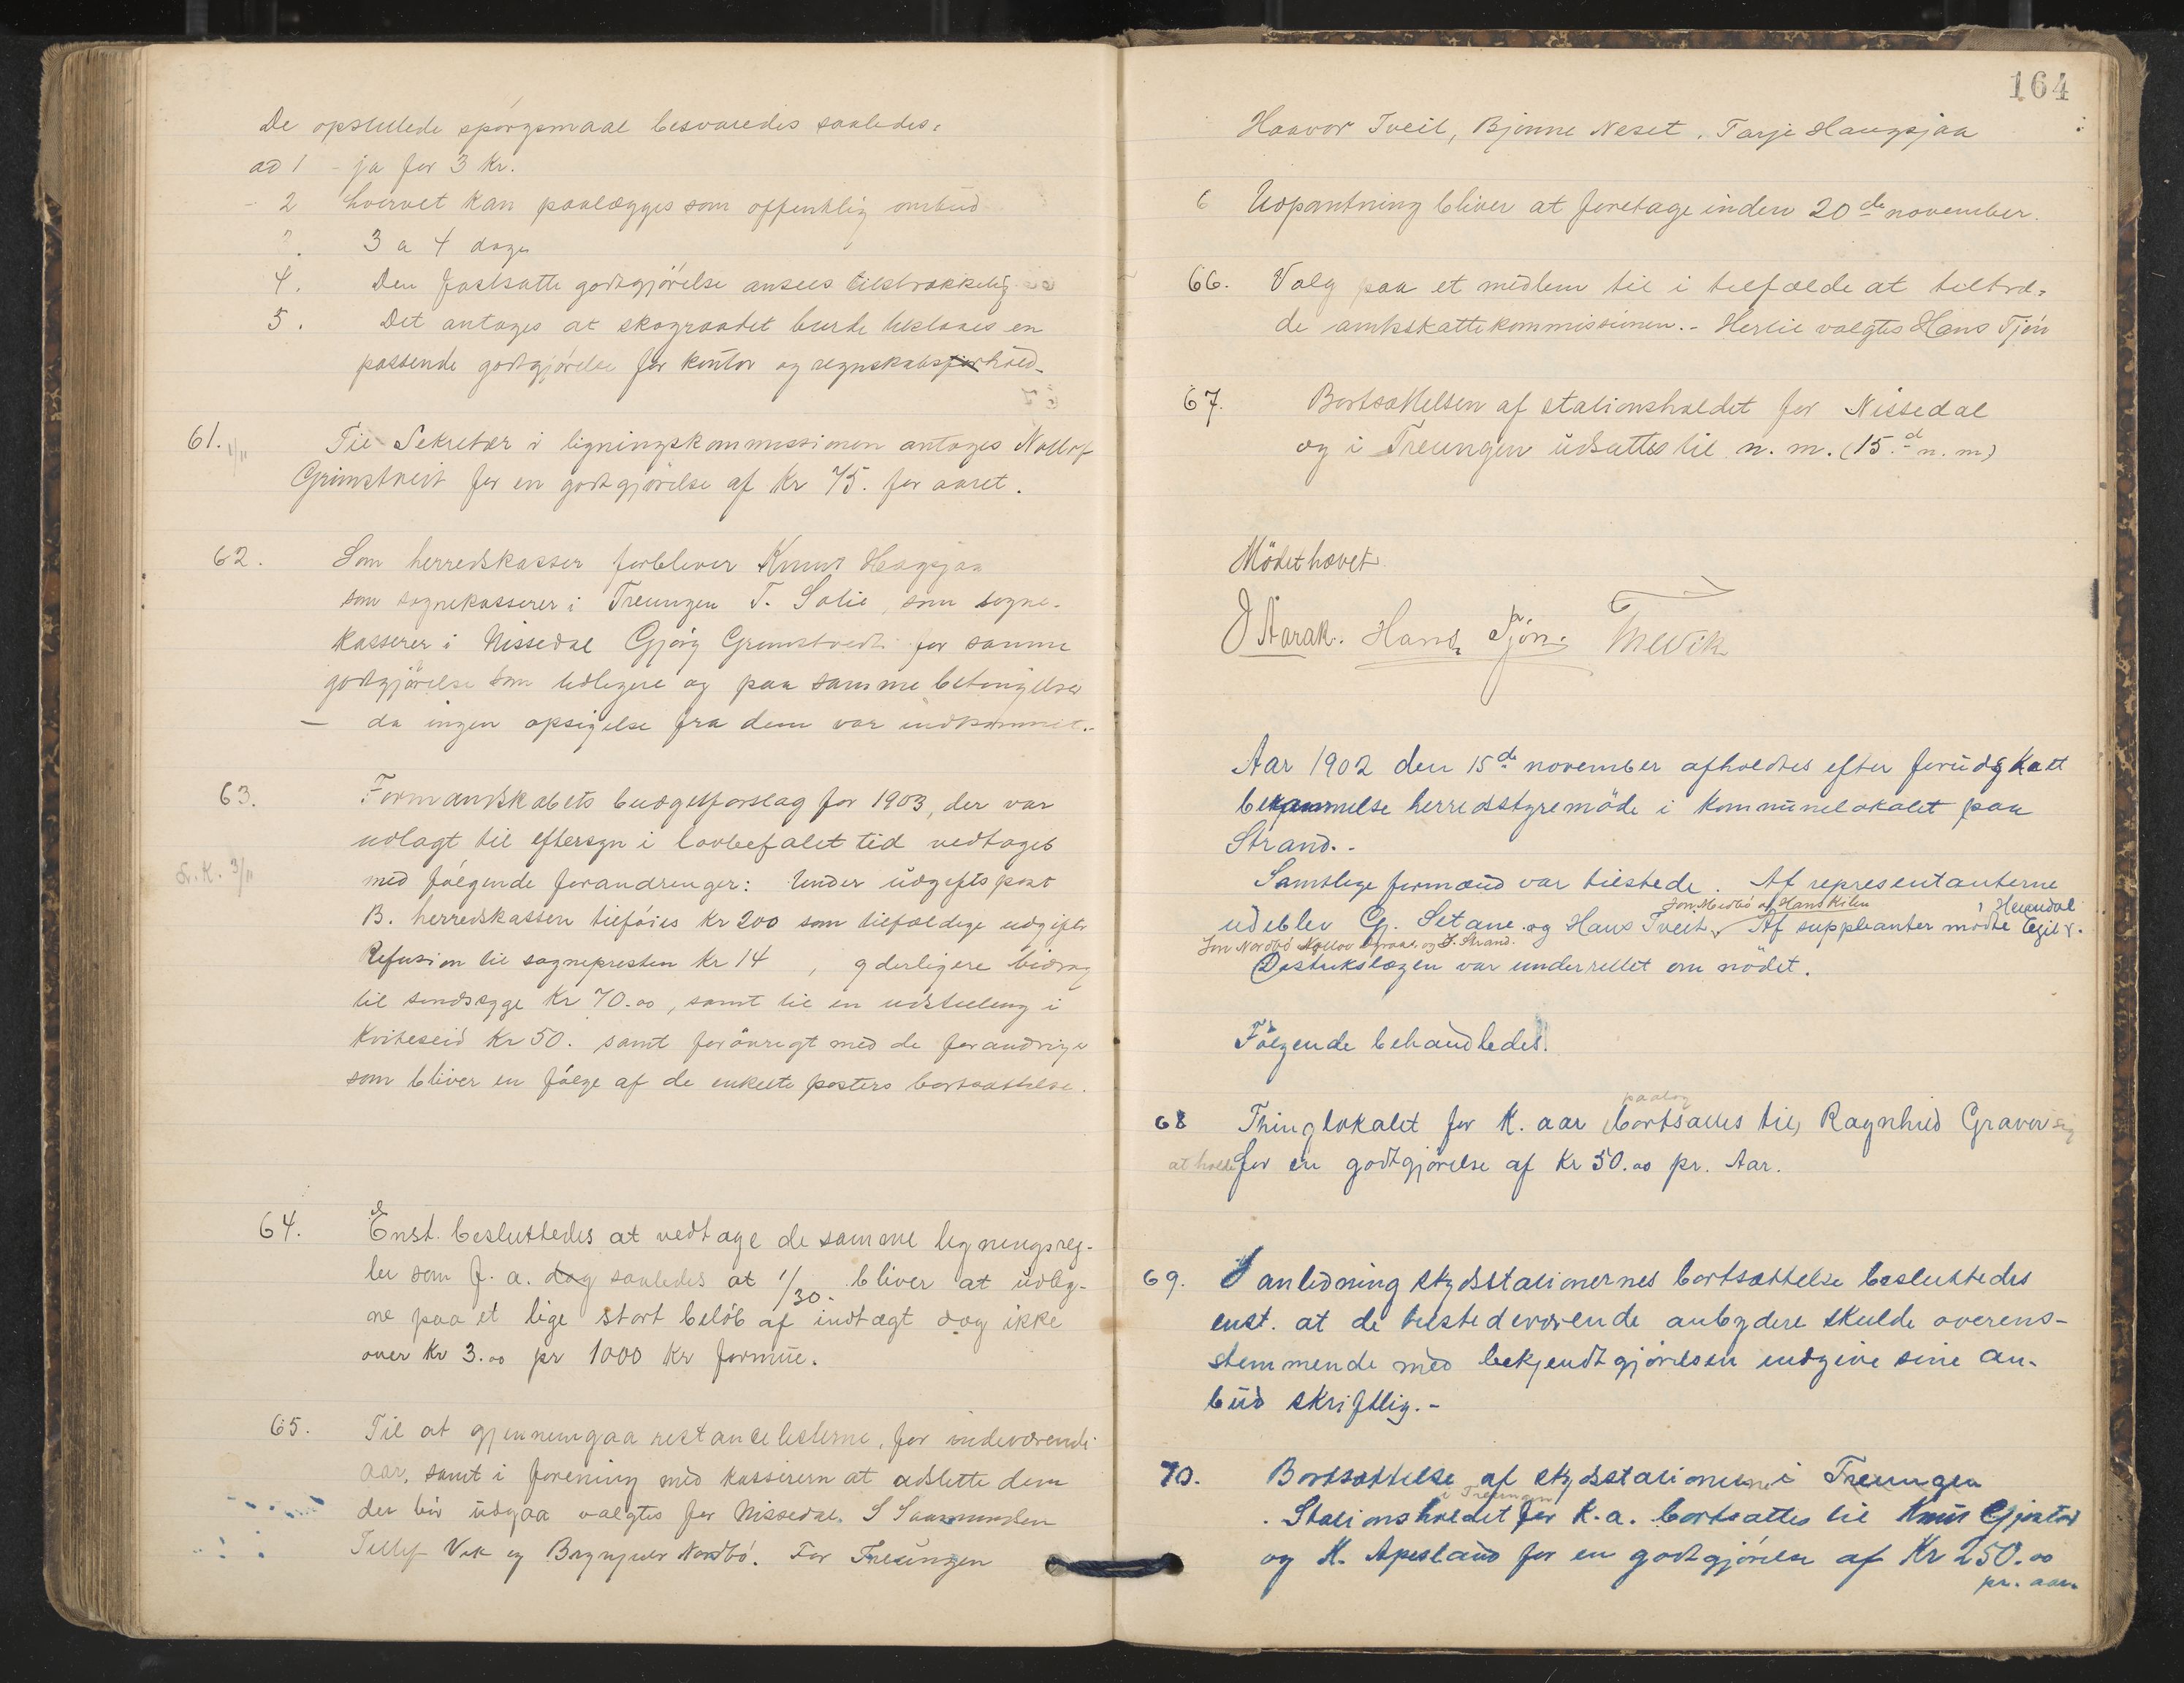 De opstillede spørgsmaal besvaredes saaledes:
ad 1 - ja for 3 Kr.
- 2 hvervet kan paalægges som offentlig ombud
3 a 4 dage
4. Den fastsatte godtgjörelse ansees tilstrækkelig
5. Det antages at skograadet burde tilstaaes en
passende godtgjörelse for kontor og regnskabsforhold.
61. 1/11 Til Sekretær i ligningskommissionen antages Nottof
Grimstveit for en godtgjörelse af Kr 75. for aaret.
62. Som herredskasser forbliver Knut Hagsjaa
som sognekasserer i Treungen T. Solie, som sogne-
kasserer i Nissedal Gjörg Grimstvedt for samme
godtgjörelse som tidligere og paa samme betingelser
— da ingen opsigelse fra dem var indkommet.-
63. Formandskabets budgetforslag for 1903, der var
udlagt til eftersyn i lovbefalet tid vedtages
L.K. 3/11 med følgende forandringer: Under udgiftspost
B. herredskassen tilføies Kr 200 som tilfældige udgifter
Refusion til sognepresten Kr 14 , yderligere bidrag
til sindssyge Kr 70.00, samt til en udstilling i
Kviteseid Kr 50. samt forövrigt med de forandringer
som bliver en følge af de enkelte posters bortsættelse.
64. Enst. besluttedes at vedtage de samme ligningsreg-
ler som f. a. dog saaledes at 1/30 bliver at udlig-
ne paa et lige stort belöb af indtægt dog ikke
over Kr 3.00 pr 1000 Kr formue.
65. Til at gjennemgaa restancelisterne, for indeværende
aar, samt i forening med kassereren at udslette dem
der bör udgaa valgtes for Nissedal. S Saamunden
Tellef Vik og Brynjulv Nordbö. For Treungen
164
Haavor Tveit, Bjönne Neset, Tarje Haugsjaa
6 Udpantning bliver at foretage inden 20de november.
66. Valg paa et medlem til i tilfælde at tiltræ-
de amtsskattekommissionen.- Hertil valgtes Hans Tjön
67. Bortsættelsen af stationsholdet for Nissedal
og i Treungen udsattes til n. m. (15.d n. m)
Mödet hævet
O Aarak. Hans Tjön. T Mevik
Aar 1902 den 15de november afholdtes efter forudgkaet
bekjammelse herredsstyremöde i kommunelokalet paa
Strand.-
Samtlige formænd var tilstede. Af representanterne
Jon Medbö og Hans Kilen Heimdal
udeblev Gj. Setane og Hans Tveit, Af suppleanter mödte Egil
Jon Nordbö og S. Strand.
Distrikslægen var underrettet om mödet.
Følgende behandledes.
paatog
68 Thinglokalet for K. aar bortsattes til Ragnhild Graver sig
at holde for en godtgjörelse af Kr 50.00 pr. Aar.
69. I anledning skydsstationernes bortsættelse besluttedes
enst. at de tilstedeværende anbydere skulde overens-
stemmende med bekjendtgjörelsen indgive sine an-
bud skriftlig.-
70. Bortsættelse af skydsstationerne i Treungen
i Treungen
Stationsholdet for K.a. bortsattes til Knut Gjestöd
og K. Apesland for en godtgjörelse af Kr 250.00
pr. aar.